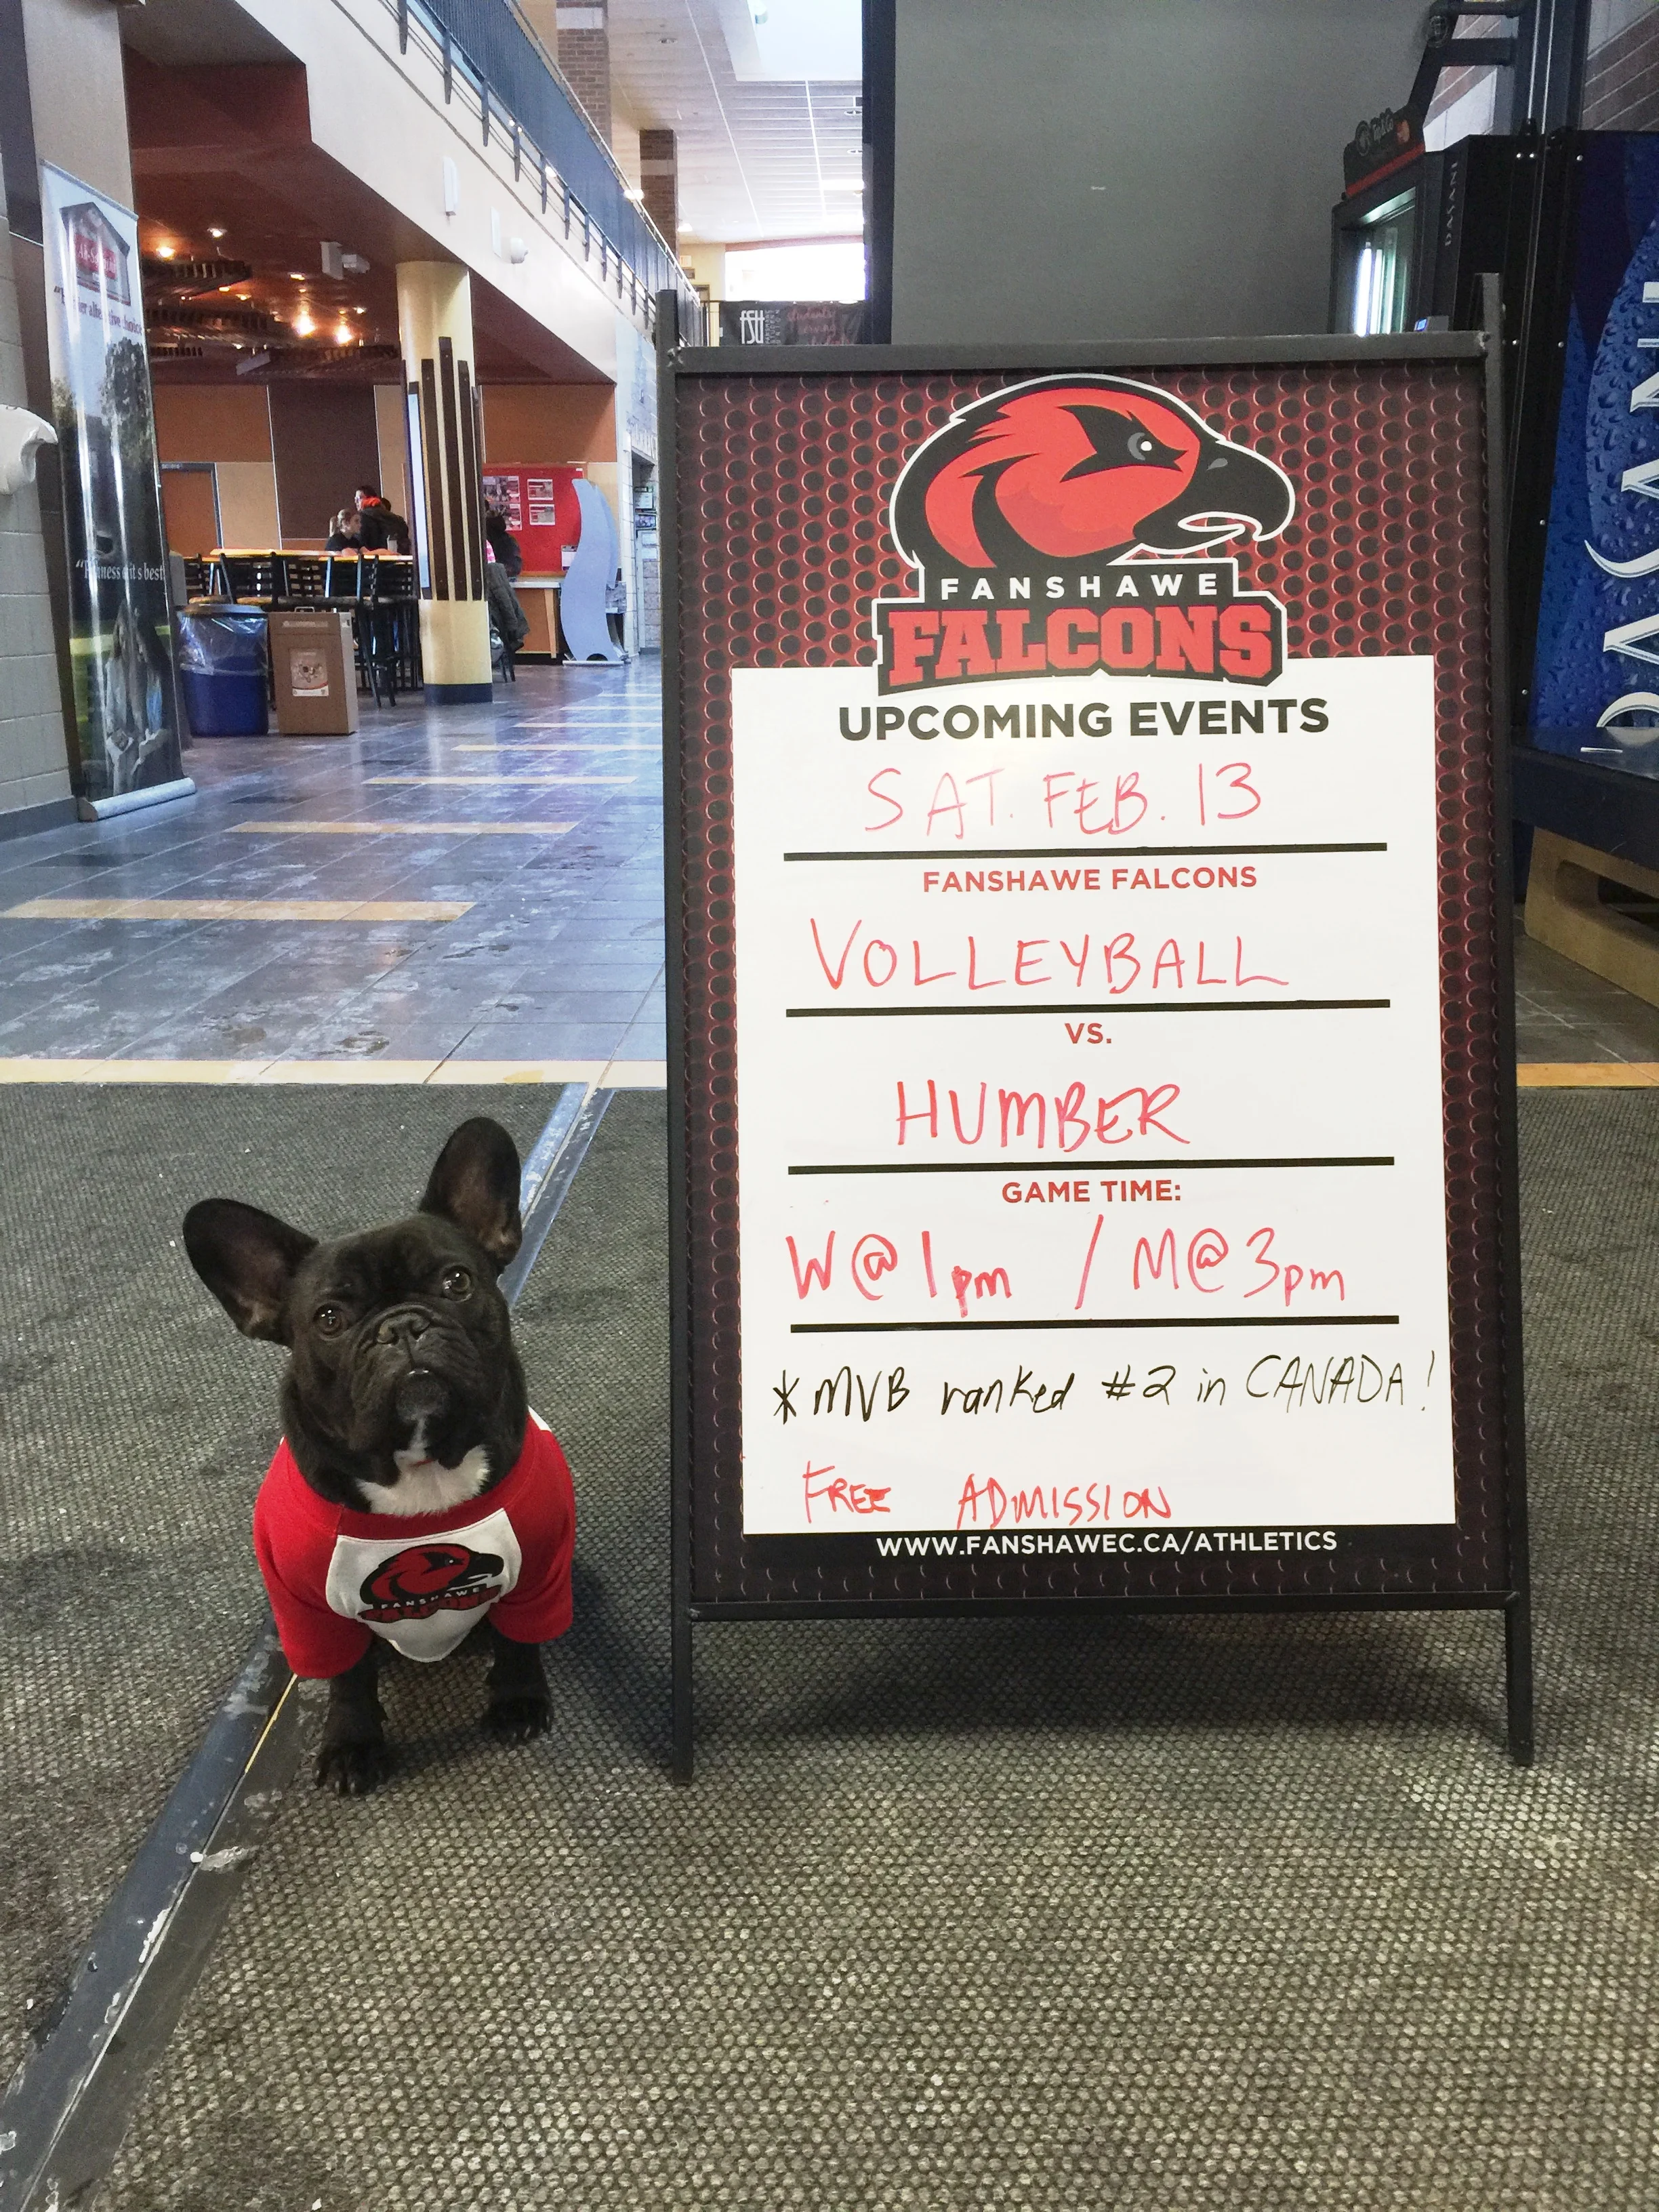 FANSHAWE
FALCONS
UPCOMING EVENTS
SAT. FEB. 13
FANSHAWE FALCONS
VOLLEYBALL
VS.
HUMBER
GAME TIME:
W@1pm / M@3pm
*MVB ranked #2 in CANADA!
FREE ADMISSION
WWW.FANSHAWEC.CA/ATHLETICS
FANSHAWE
FALCONS
DASANI
DASANI
fsu